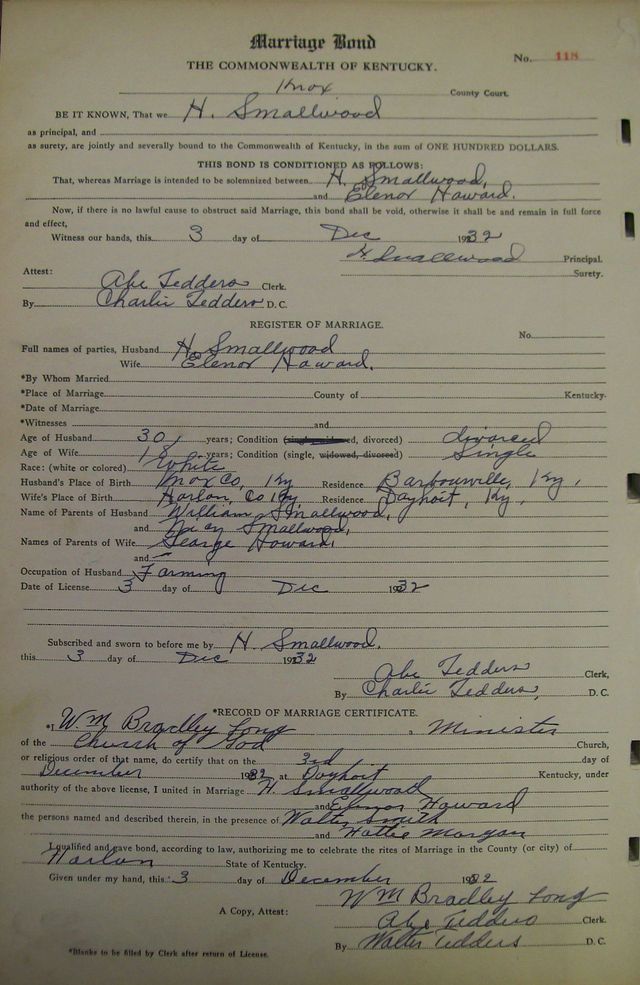 Marriage Bond
THE COMMONWEALTH OF KENTUCKY.
No. 118
Knox County Court.
BE IT KNOWN, That we H. Smallwood
as principal, and
as surety, are jointly and severally bound to the Commonwealth of Kentucky, in the sum of ONE HUNDRED DOLLARS.
THIS BOND IS CONDITIONED AS FOLLOWS:
That, whereas Marriage is intended to be solemnized between H. Smallwood,
and Elenor Howard.
Now, if there is no lawful cause to obstruct said Marriage, this bond shall be void, otherwise it shall be and remain in full force
and effect,
Witness our hands, this 3 day of Dec 1932
H Smallwood Principal.
Surety.
Attest:
Abe Tedders Clerk.
By Charlie Tedders D. C.
REGISTER OF MARRIAGE.
No.
Full names of parties, Husband H Smallwood
Wife Elenor Howard.
*By Whom Married
*Place of Marriage County of Kentucky.
*Date of Marriage
*Witnesses and
Age of Husband 30 years; Condition (single, widowed, divorced) divorced
Age of Wife 18 years; Condition (single, widowed, divorced) Single
Race: (white or colored) White
Husband's Place of Birth Knox Co, Ky Residence Barbourville, Ky.
Wife's Place of Birth Harlan, Co Ky Residence Dayhoit, Ky.
Name of Parents of Husband William Smallwood,
and Smallwood,
Names of Parents of Wife George Howard,
and
Occupation of Husband Farming
Date of License 3 day of Dec 1932
Subscribed and sworn to before me by H. Smallwood.
this 3 day of Dec 1932
Abe Tedders Clerk,
By Charlie Tedders, D. C.
*RECORD OF MARRIAGE CERTIFICATE.
*I Wm Bradley Long, a Minister
of the Church of God Church,
or religious order of that name, do certify that on the 3rd day of
December 1932 at Dayhoit Kentucky, under
authority of the above license, I united in Marriage H. Smallwood
and Elenor Howard
the persons named and described therein, in the presence of Walter Smith
and Hattie Morgan
I qualified and gave bond, according to law, authorizing me to celebrate the rites of Marriage in the County (or city) of
Harlan State of Kentucky.
Given under my hand, this 3 day of December 1932
Wm Bradley Long
A Copy, Attest: Abe Tedders Clerk.
By Walter Tedders D. C.
*Blanks to be filled by Clerk after return of License.